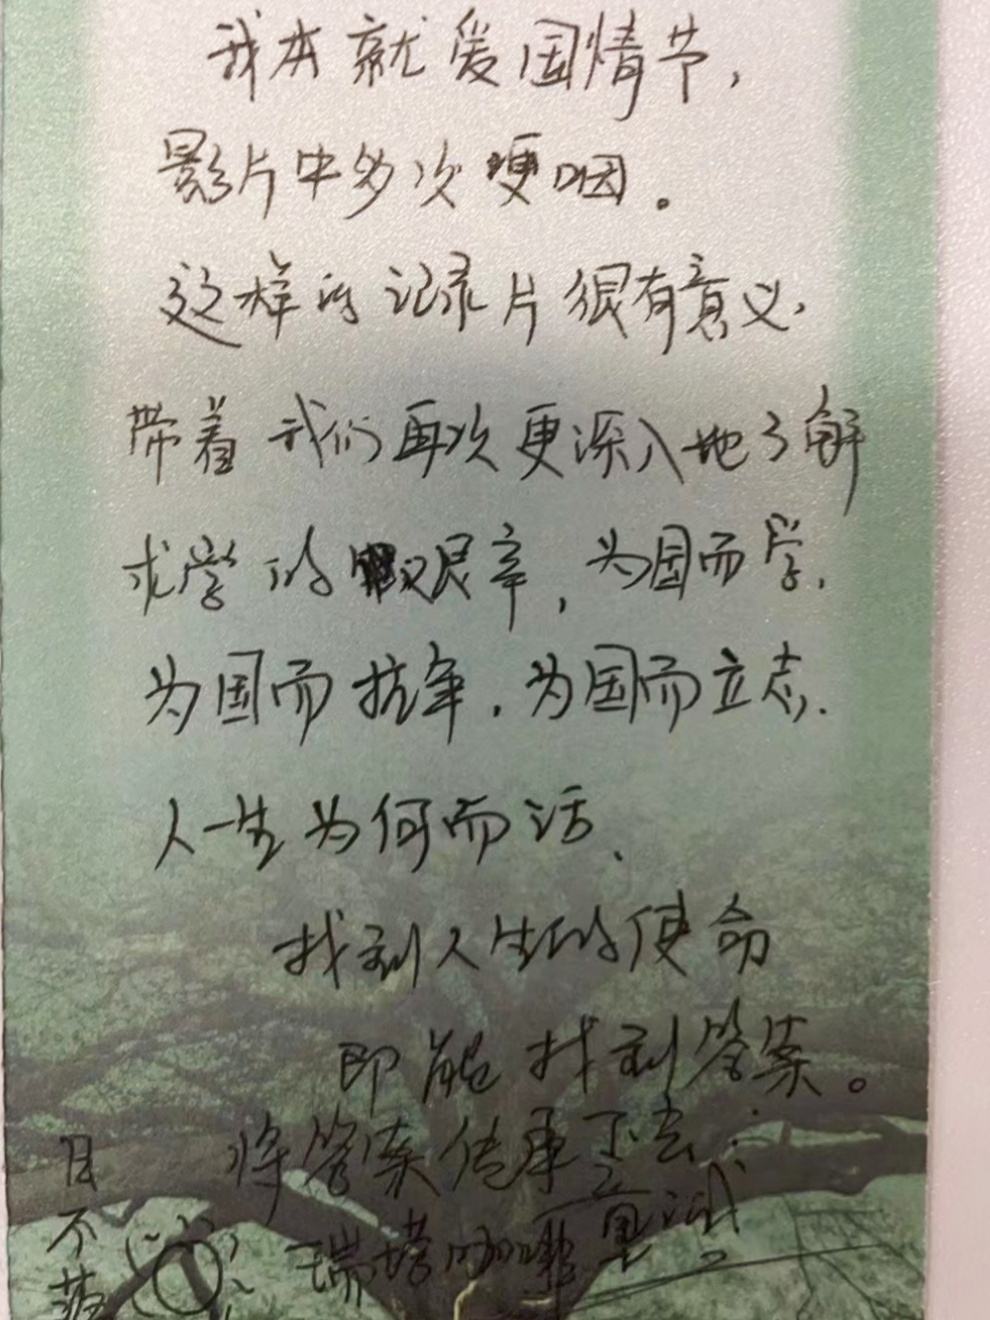 我本就爱国情节，
影片中多次哽咽。
这样的记录片很有意义.
带着我们再次更深入地了解
求学的艰辛，为国而学.
为国而抗争.为国而立志.
人一生为何而活、
找到人生的使命
即能找到答案。
将答案传承下去
瑞塔咖啡
日
不
落